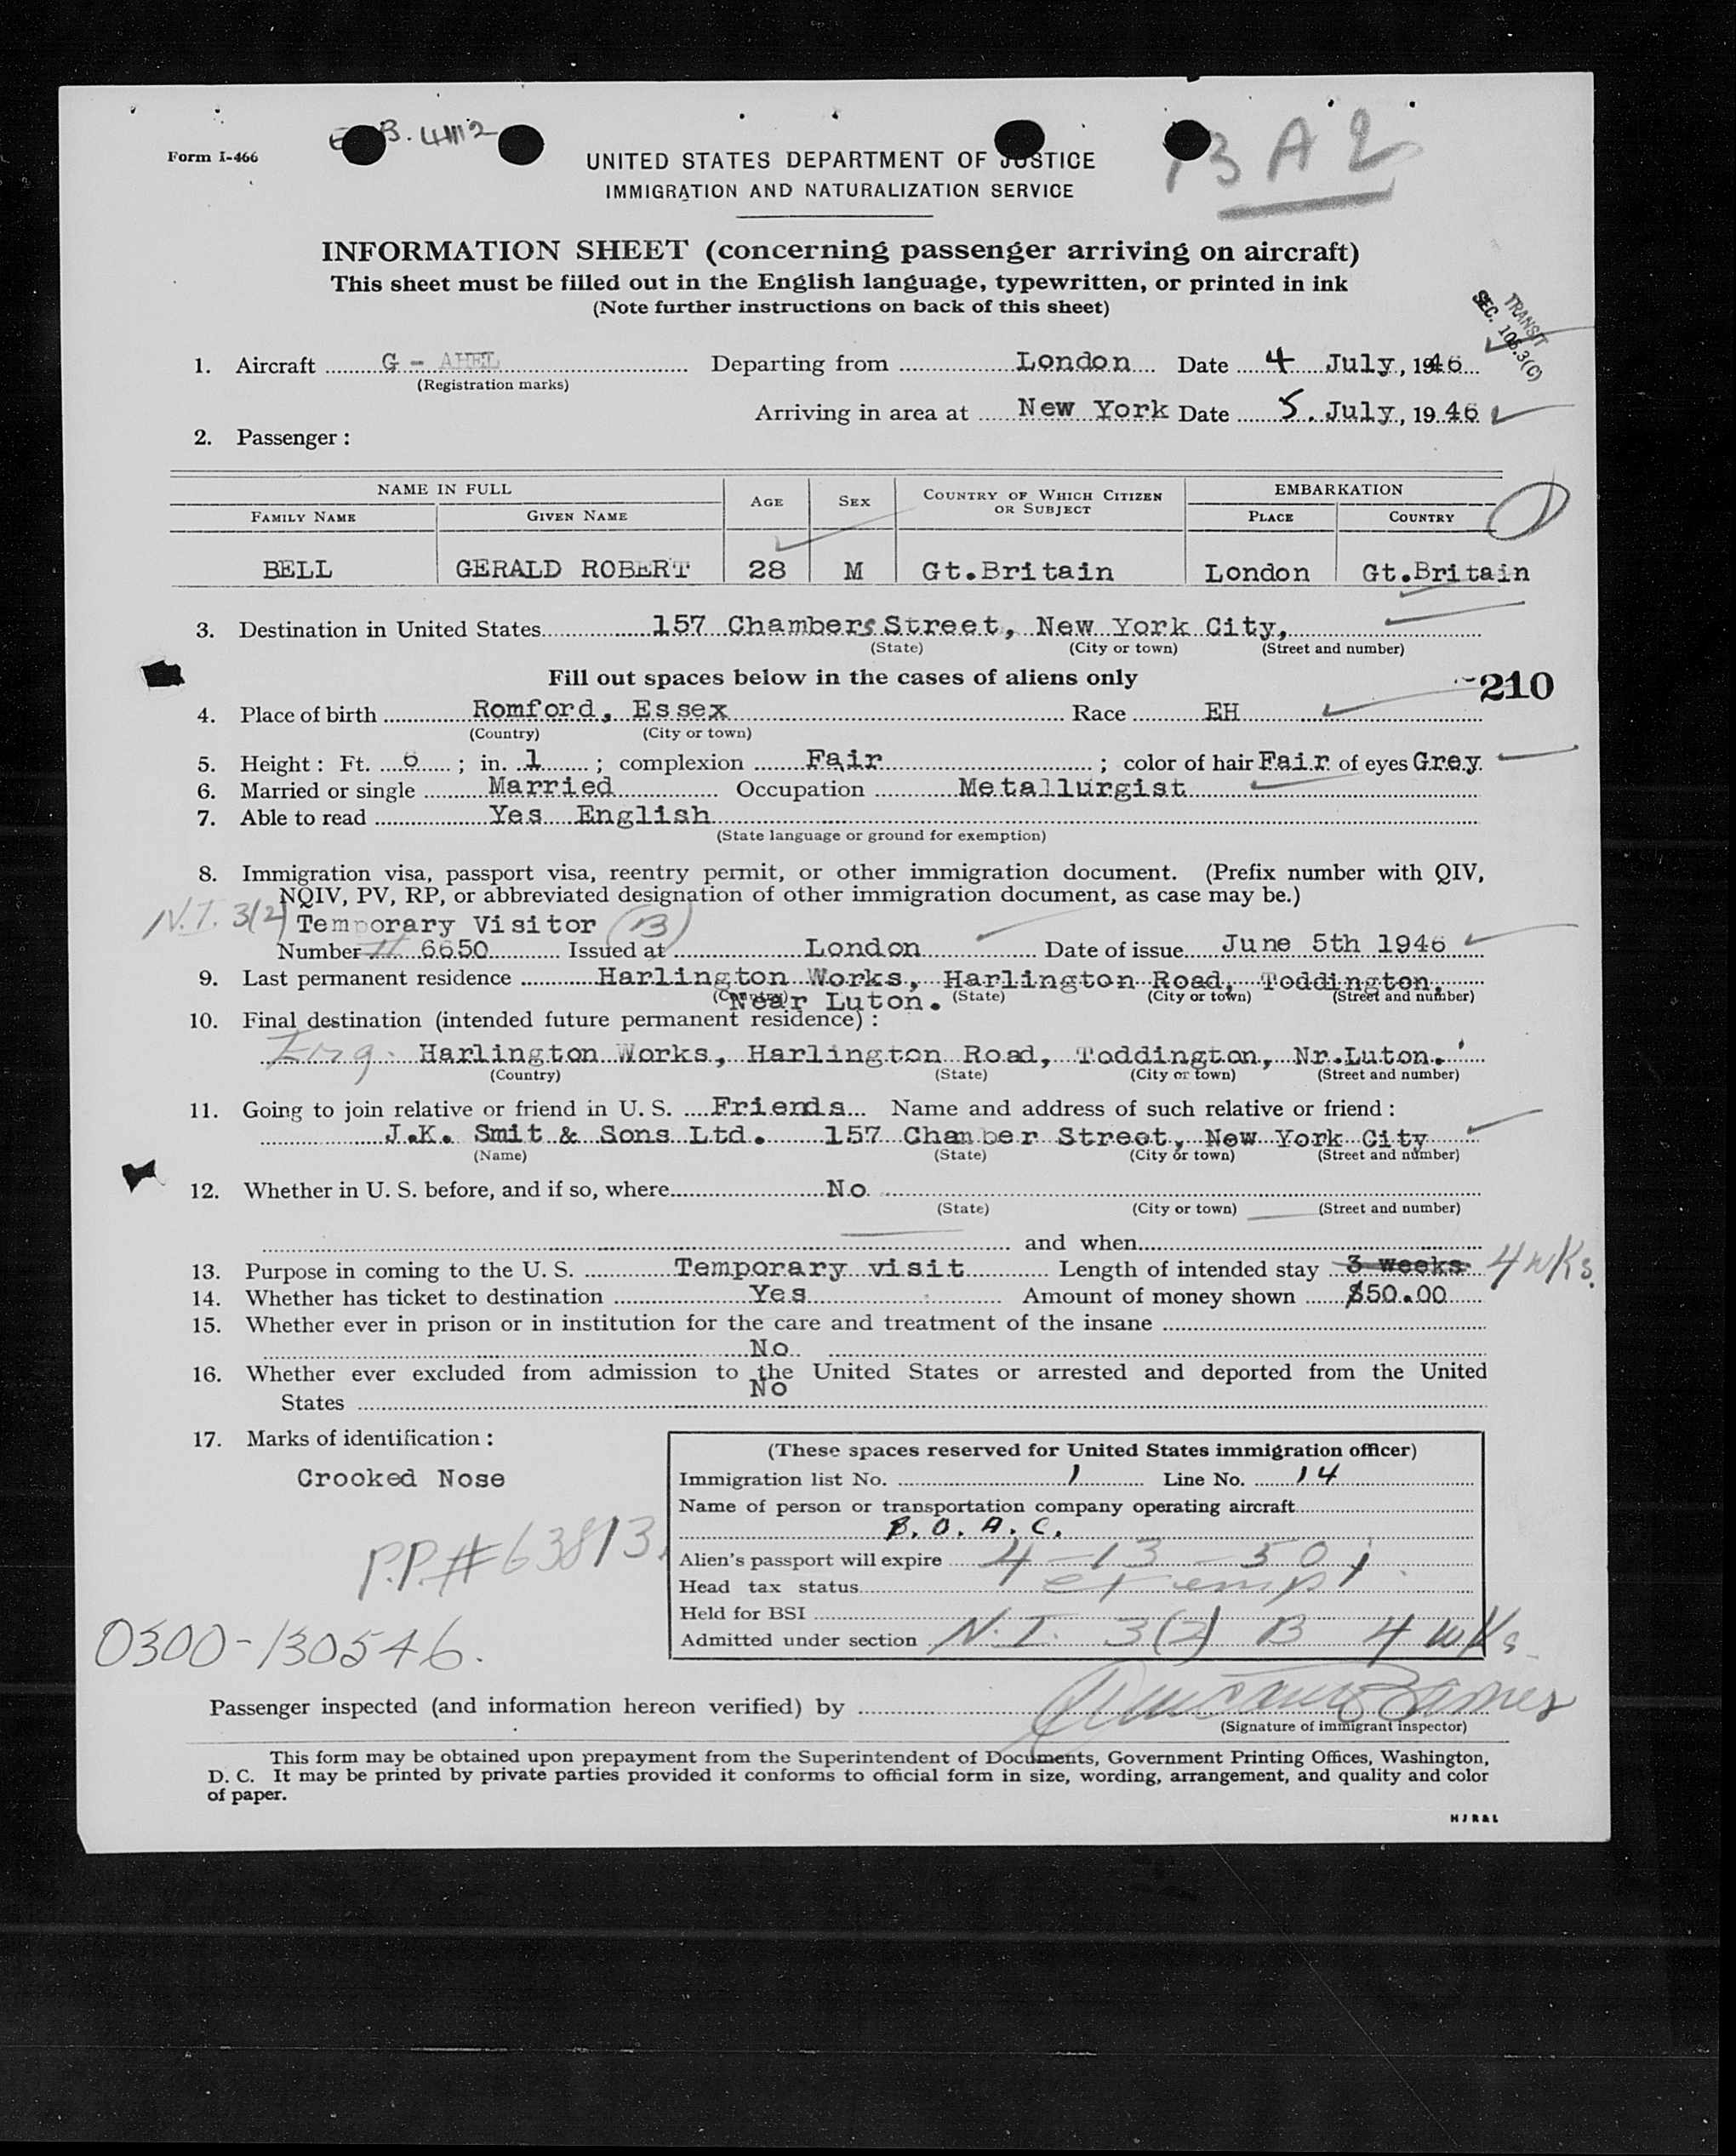 B. 4112
Form I-466
UNITED STATES DEPARTMENT OF JUSTICE
IMMIGRATION AND NATURALIZATION SERVICE
B A 2
INFORMATION SHEET (concerning passenger arriving on aircraft)
This sheet must be filled out in the English language, typewritten, or printed in ink
(Note further instructions on back of this sheet)
TRANSIT
SEC. 105.3(C)
1. Aircraft G - AHEL Departing from London Date 4 July, 1946
(Registration marks)
Arriving in area at New York Date 5 July, 1946
2. Passenger:
NAME IN FULL AGE SEX COUNTRY OF WHICH CITIZEN OR SUBJECT EMBARKATION
FAMILY NAME GIVEN NAME PLACE COUNTRY
BELL GERALD ROBERT 28 M Gt.Britain London Gt.Britain
3. Destination in United States 157 Chambers Street, New York City,
(State) (City or town) (Street and number)
Fill out spaces below in the cases of aliens only
210
4. Place of birth Romford, Essex Race EH
(Country) (City or town)
5. Height: Ft. 6 ; in. 1 ; complexion Fair ; color of hair Fair of eyes Grey
6. Married or single Married Occupation Metallurgist
7. Able to read Yes English
(State language or ground for exemption)
8. Immigration visa, passport visa, reentry permit, or other immigration document. (Prefix number with QIV,
NQIV, PV, RP, or abbreviated designation of other immigration document, as case may be.)
N.I. 3(2) Temporary Visitor (B)
Number 6650 Issued at London Date of issue June 5th 1946
9. Last permanent residence Harlington Works, Harlington Road, Toddington,
(Country) (State) (City or town) (Street and number)
Near Luton.
10. Final destination (intended future permanent residence):
Eng. Harlington Works, Harlington Road, Toddington, Nr.Luton.
(Country) (State) (City or town) (Street and number)
11. Going to join relative or friend in U. S. Friends Name and address of such relative or friend:
J.K. Smit & Sons Ltd. 157 Chamber Street, New York City
(Name) (State) (City or town) (Street and number)
12. Whether in U. S. before, and if so, where No
(State) (City or town) (Street and number)
and when
13. Purpose in coming to the U. S. Temporary visit Length of intended stay 3 weeks 4 wks.
14. Whether has ticket to destination Yes Amount of money shown $50.00
15. Whether ever in prison or in institution for the care and treatment of the insane
No
16. Whether ever excluded from admission to the United States or arrested and deported from the United
States No
17. Marks of identification:
Crooked Nose
P.P.#63813.
0300-130546.
(These spaces reserved for United States immigration officer)
Immigration list No. 1 Line No. 14
Name of person or transportation company operating aircraft
B. O. A. C.
Alien's passport will expire 4-13-50
Head tax status exempt
Held for BSI
Admitted under section N.I. 3(2) B 4 wks
Passenger inspected (and information hereon verified) by
(Signature of immigrant inspector)
This form may be obtained upon prepayment from the Superintendent of Documents, Government Printing Offices, Washington,
D. C. It may be printed by private parties provided it conforms to official form in size, wording, arrangement, and quality and color
of paper.
HJR&L